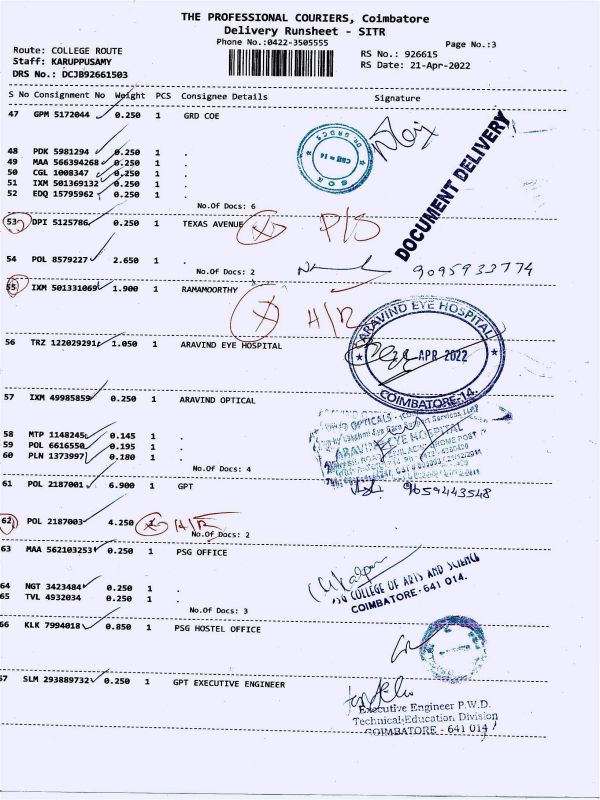 THE PROFESSIONAL COURIERS, Coimbatore
Delivery Runsheet - SITR
Phone No.:0422-3505555
Page No.:3
Route: COLLEGE ROUTE
Staff: KARUPPUSAMY
DRS No.: DCJB92661503
RS No.: 926615
RS Date: 21-Apr-2022
S No Consignment No Weight PCS Consignee Details Signature
47 GPM 5172044 0.250 1 GRD COE
48 PDK 5981294 0.250 1 .
49 MAA 566394268 0.250 1 .
50 CGL 1008347 0.250 1 .
51 IXM 501369132 0.250 1 .
52 EDQ 15795962 0.250 1 .
No.Of Docs: 6
DOCUMENT DELIVERY
53 DPI 5125786 0.250 1 TEXAS AVENUE P/S
54 POL 8579227 2.650 1 .
No.Of Docs: 2
9095933774
55 IXM 501331069 1.900 1 RAMAMOORTHY
56 TRZ 122029291 1.050 1 ARAVIND EYE HOSPITAL
ARAVIND EYE HOSPITAL
APR 2022
COIMBATORE-14.
57 IXM 49985859 0.250 1 ARAVIND OPTICAL
58 MTP 1148245 0.145 1 .
59 POL 6616550 0.195 1 .
60 PLN 1373997 0.180 1 .
No.Of Docs: 4
OPTICALS
ARAVIND EYE HOSPITAL
61 POL 2187001 6.900 1 GPT
9659443548
62 POL 2187003 4.250 1
No.Of Docs: 2
63 MAA 562103253 0.250 1 PSG OFFICE
64 NGT 3423484 0.250 1 .
65 TVL 4932034 0.250 1 .
No.Of Docs: 3
PSG COLLEGE OF ARTS AND SCIENCE
COIMBATORE-641 014.
66 KLK 7994018 0.850 1 PSG HOSTEL OFFICE
67 SLM 293889732 0.250 1 GPT EXECUTIVE ENGINEER
Executive Engineer P.W.D.
Technical Education Division
COIMBATORE - 641 014